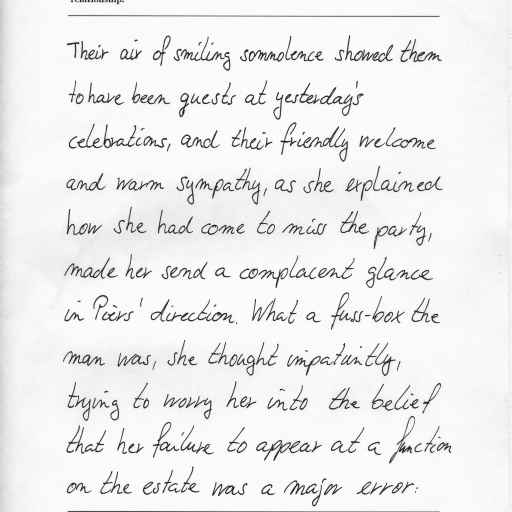 relationship.
Their air of smiling somnolence showed them
to have been guests at yesterday's
celebrations, and their friendly welcome
and warm sympathy, as she explained
how she had come to miss the party,
made her send a complacent glance
in Piers' direction. What a fuss-box the
man was, she thought impatiently,
trying to worry her into the belief
that her failure to appear at a function
on the estate was a major error.